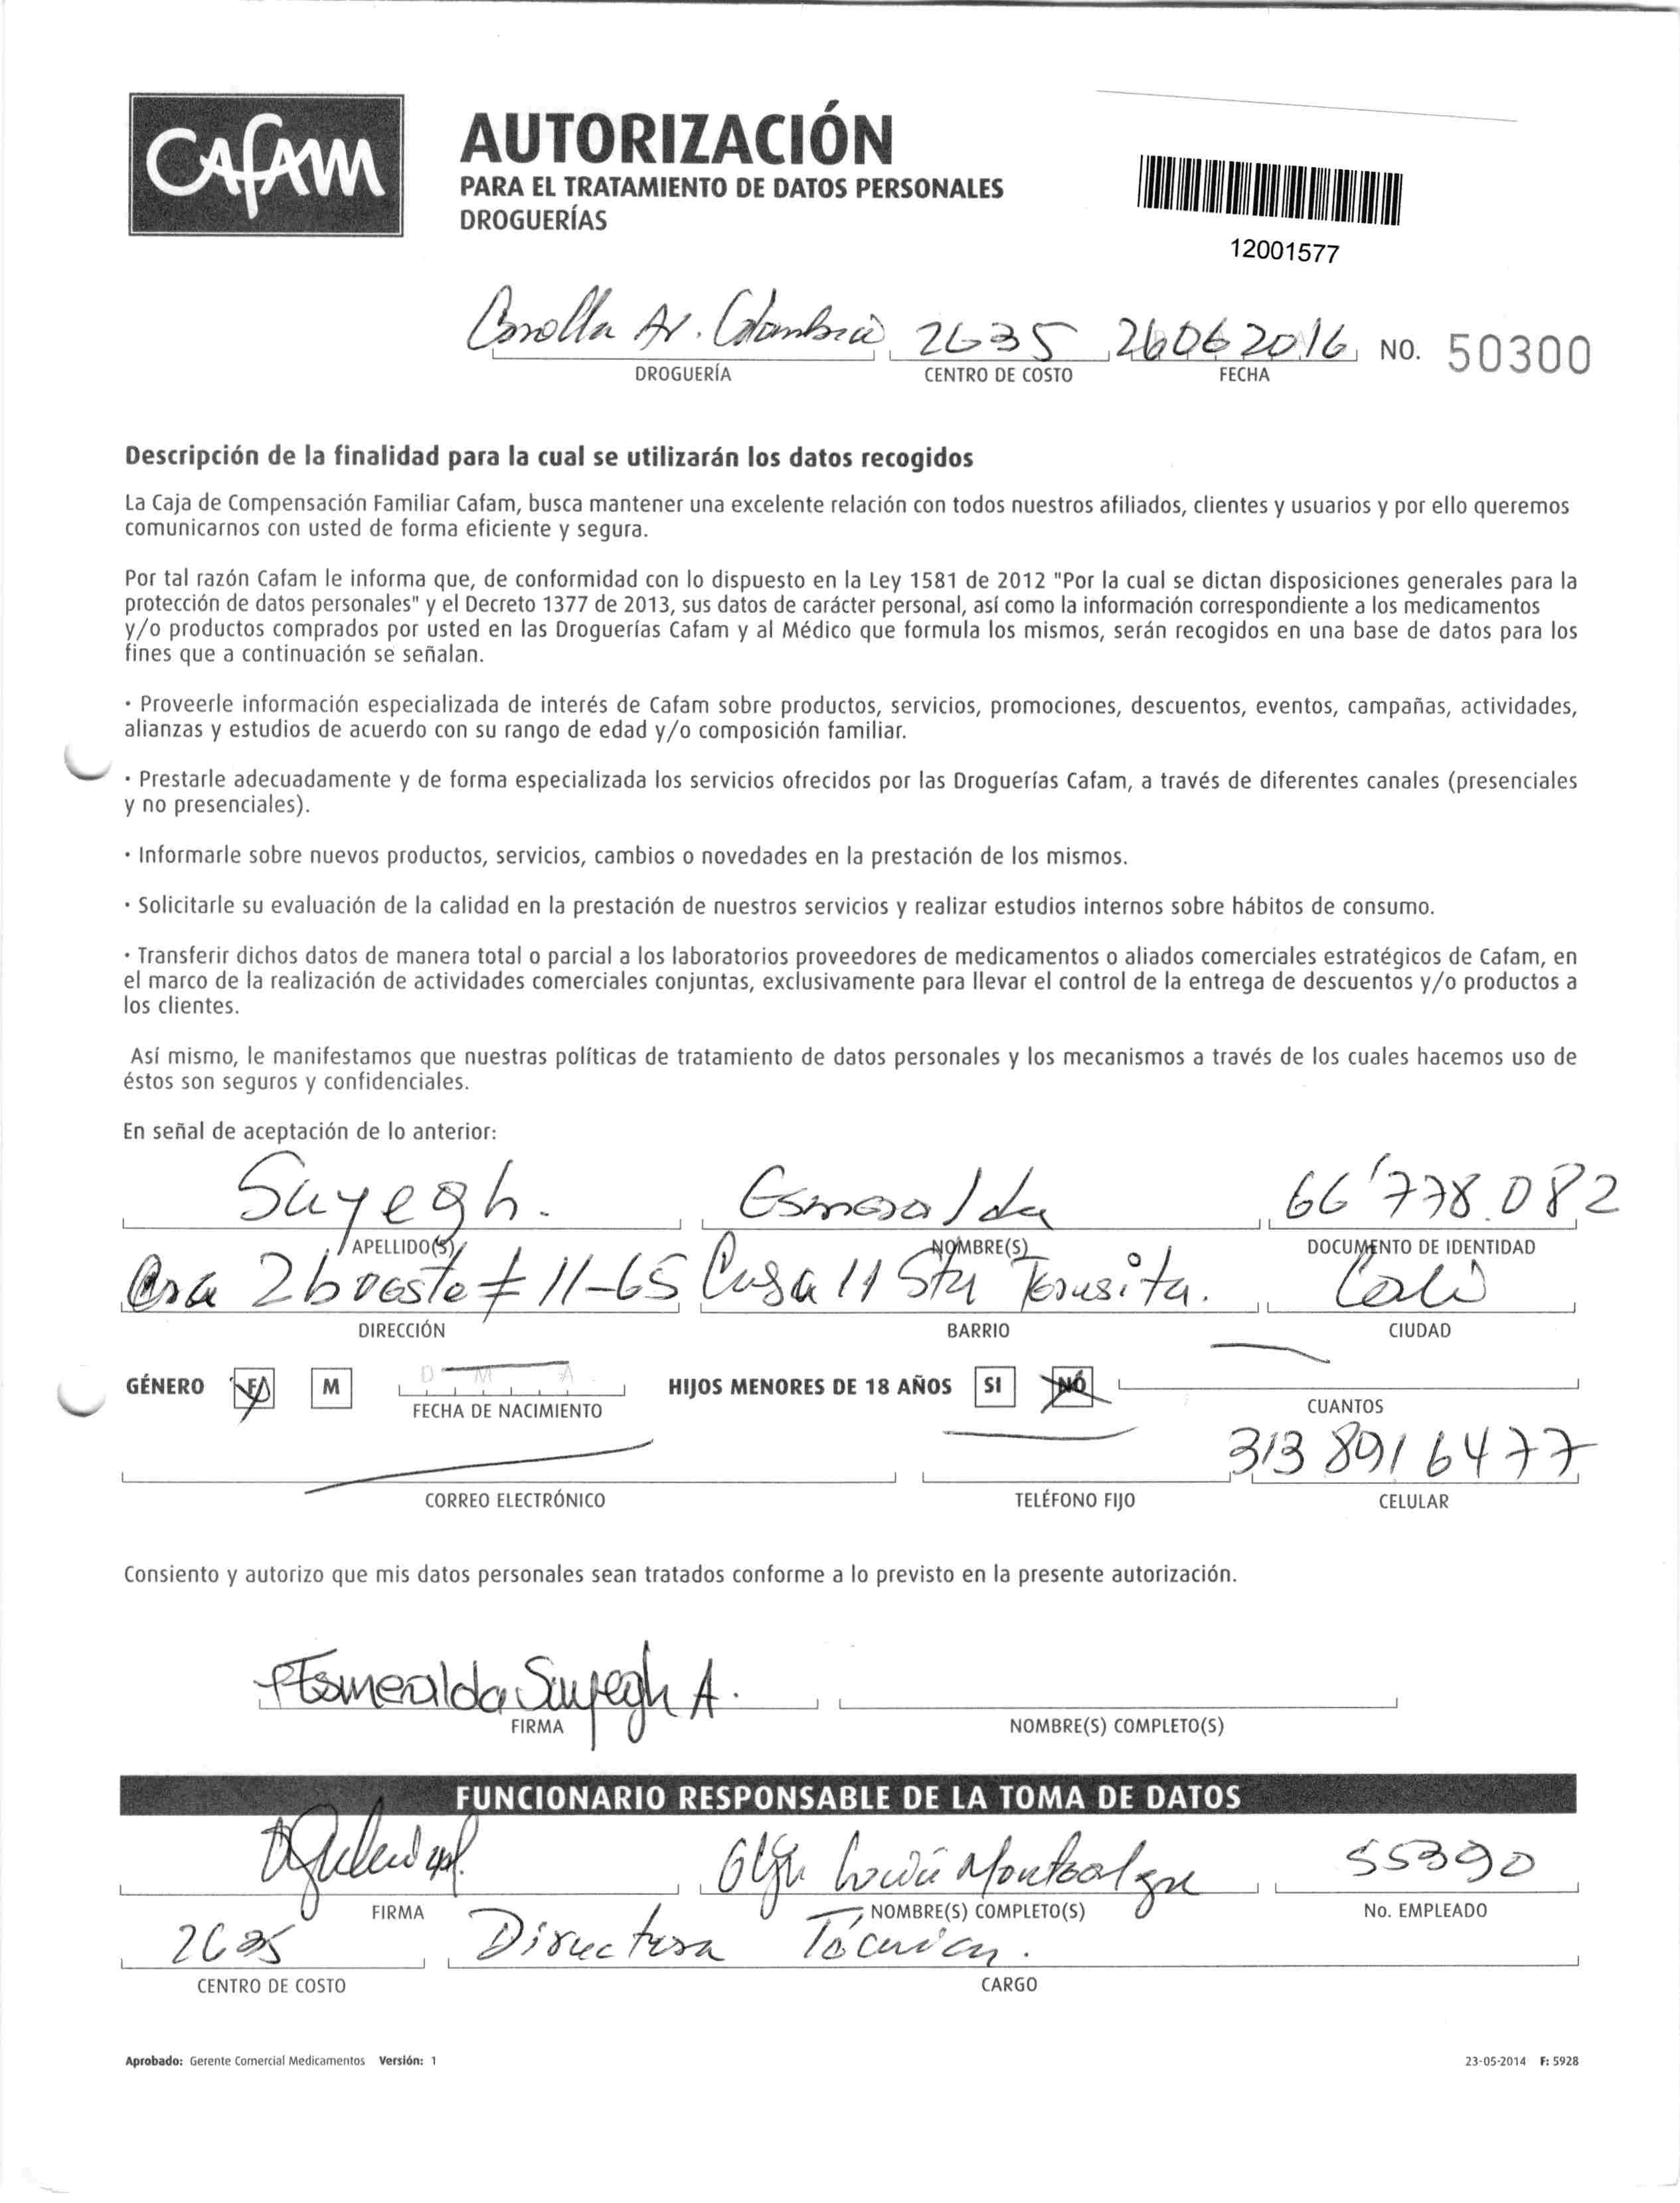 CAFAM
AUTORIZACIÓN
PARA EL TRATAMIENTO DE DATOS PERSONALES
DROGUERÍAS
12001577
Av. Colombia 2635 26062016 NO. 50300
DROGUERÍA CENTRO DE COSTO FECHA
Descripción de la finalidad para la cual se utilizarán los datos recogidos
La Caja de Compensación Familiar Cafam, busca mantener una excelente relación con todos nuestros afiliados, clientes y usuarios y por ello queremos
comunicarnos con usted de forma eficiente y segura.
Por tal razón Cafam le informa que, de conformidad con lo dispuesto en la Ley 1581 de 2012 "Por la cual se dictan disposiciones generales para la
protección de datos personales" y el Decreto 1377 de 2013, sus datos de carácter personal, así como la información correspondiente a los medicamentos
y/o productos comprados por usted en las Droguerías Cafam y al Médico que formula los mismos, serán recogidos en una base de datos para los
fines que a continuación se señalan.
· Proveerle información especializada de interés de Cafam sobre productos, servicios, promociones, descuentos, eventos, campañas, actividades,
alianzas y estudios de acuerdo con su rango de edad y/o composición familiar.
· Prestarle adecuadamente y de forma especializada los servicios ofrecidos por las Droguerías Cafam, a través de diferentes canales (presenciales
y no presenciales).
· Informarle sobre nuevos productos, servicios, cambios o novedades en la prestación de los mismos.
· Solicitarle su evaluación de la calidad en la prestación de nuestros servicios y realizar estudios internos sobre hábitos de consumo.
· Transferir dichos datos de manera total o parcial a los laboratorios proveedores de medicamentos o aliados comerciales estratégicos de Cafam, en
el marco de la realización de actividades comerciales conjuntas, exclusivamente para llevar el control de la entrega de descuentos y/o productos a
los clientes.
Así mismo, le manifestamos que nuestras políticas de tratamiento de datos personales y los mecanismos a través de los cuales hacemos uso de
éstos son seguros y confidenciales.
En señal de aceptación de lo anterior:
Sayegh. Esmeralda 66'778.082
APELLIDO(S) NOMBRE(S) DOCUMENTO DE IDENTIDAD
Cra 2b oeste # 11-65 Casa 11 Sta Teresita. Cali
DIRECCIÓN BARRIO CIUDAD
GÉNERO F M D M A HIJOS MENORES DE 18 AÑOS SI NO
FECHA DE NACIMIENTO CUANTOS
313 8916477
CORREO ELECTRÓNICO TELÉFONO FIJO CELULAR
Consiento y autorizo que mis datos personales sean tratados conforme a lo previsto en la presente autorización.
Esmeralda Sayegh A.
FIRMA NOMBRE(S) COMPLETO(S)
FUNCIONARIO RESPONSABLE DE LA TOMA DE DATOS
Olga Lucía Montealegre 55390
FIRMA NOMBRE(S) COMPLETO(S) No. EMPLEADO
2635 Directora Técnica.
CENTRO DE COSTO CARGO
Aprobado: Gerente Comercial Medicamentos Versión: 1 23-05-2014 F: 5928